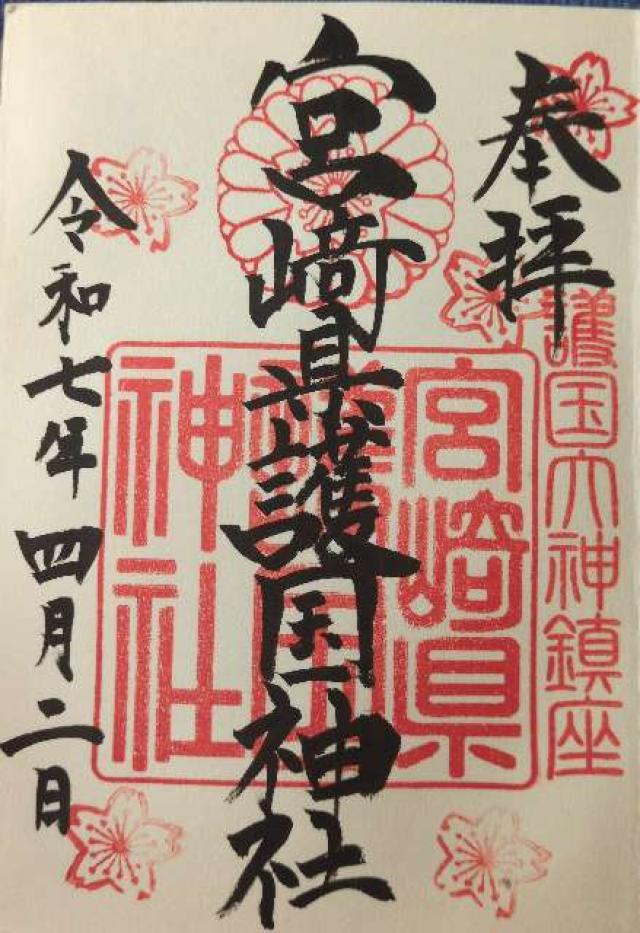 奉拝
護国大神鎮座
宮崎県護国神社
宮崎県
護国
神社
令和七年四月二日